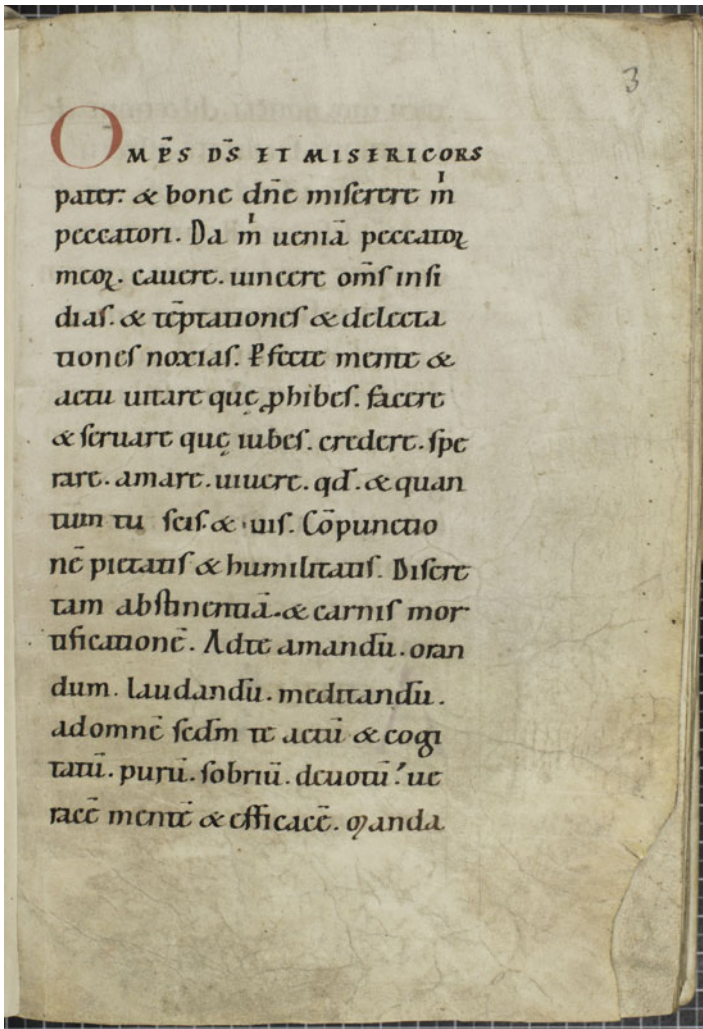 3
OMP̄S D̄S ET MISERICORS
pater. & bone dn̄e miserere m̍
peccatori. Da m̍ ueniā peccatoꝝ
meoꝝ. cauere. uincere om̄s insi
dias. & tēptationes & delecta
tiones noxias. Ꝑfecte mente &
actu uitare quę ꝓhibes. facere
& seruare quę iubes. credere. spe
rare. amare. uiuere. qd̄. & quan
tum tu scis. & uis. Cōpunctio
nē pietatis & humilitatis. Discre
tam abstinentiā. & carnis mor
tificationē. Adte amandū. oran
dum. laudandū. meditandū.
adomnē secdm̄ te actū & cogi
tatū. purū. sobriū. deuotū. ue
racē mentē & efficacē. Manda